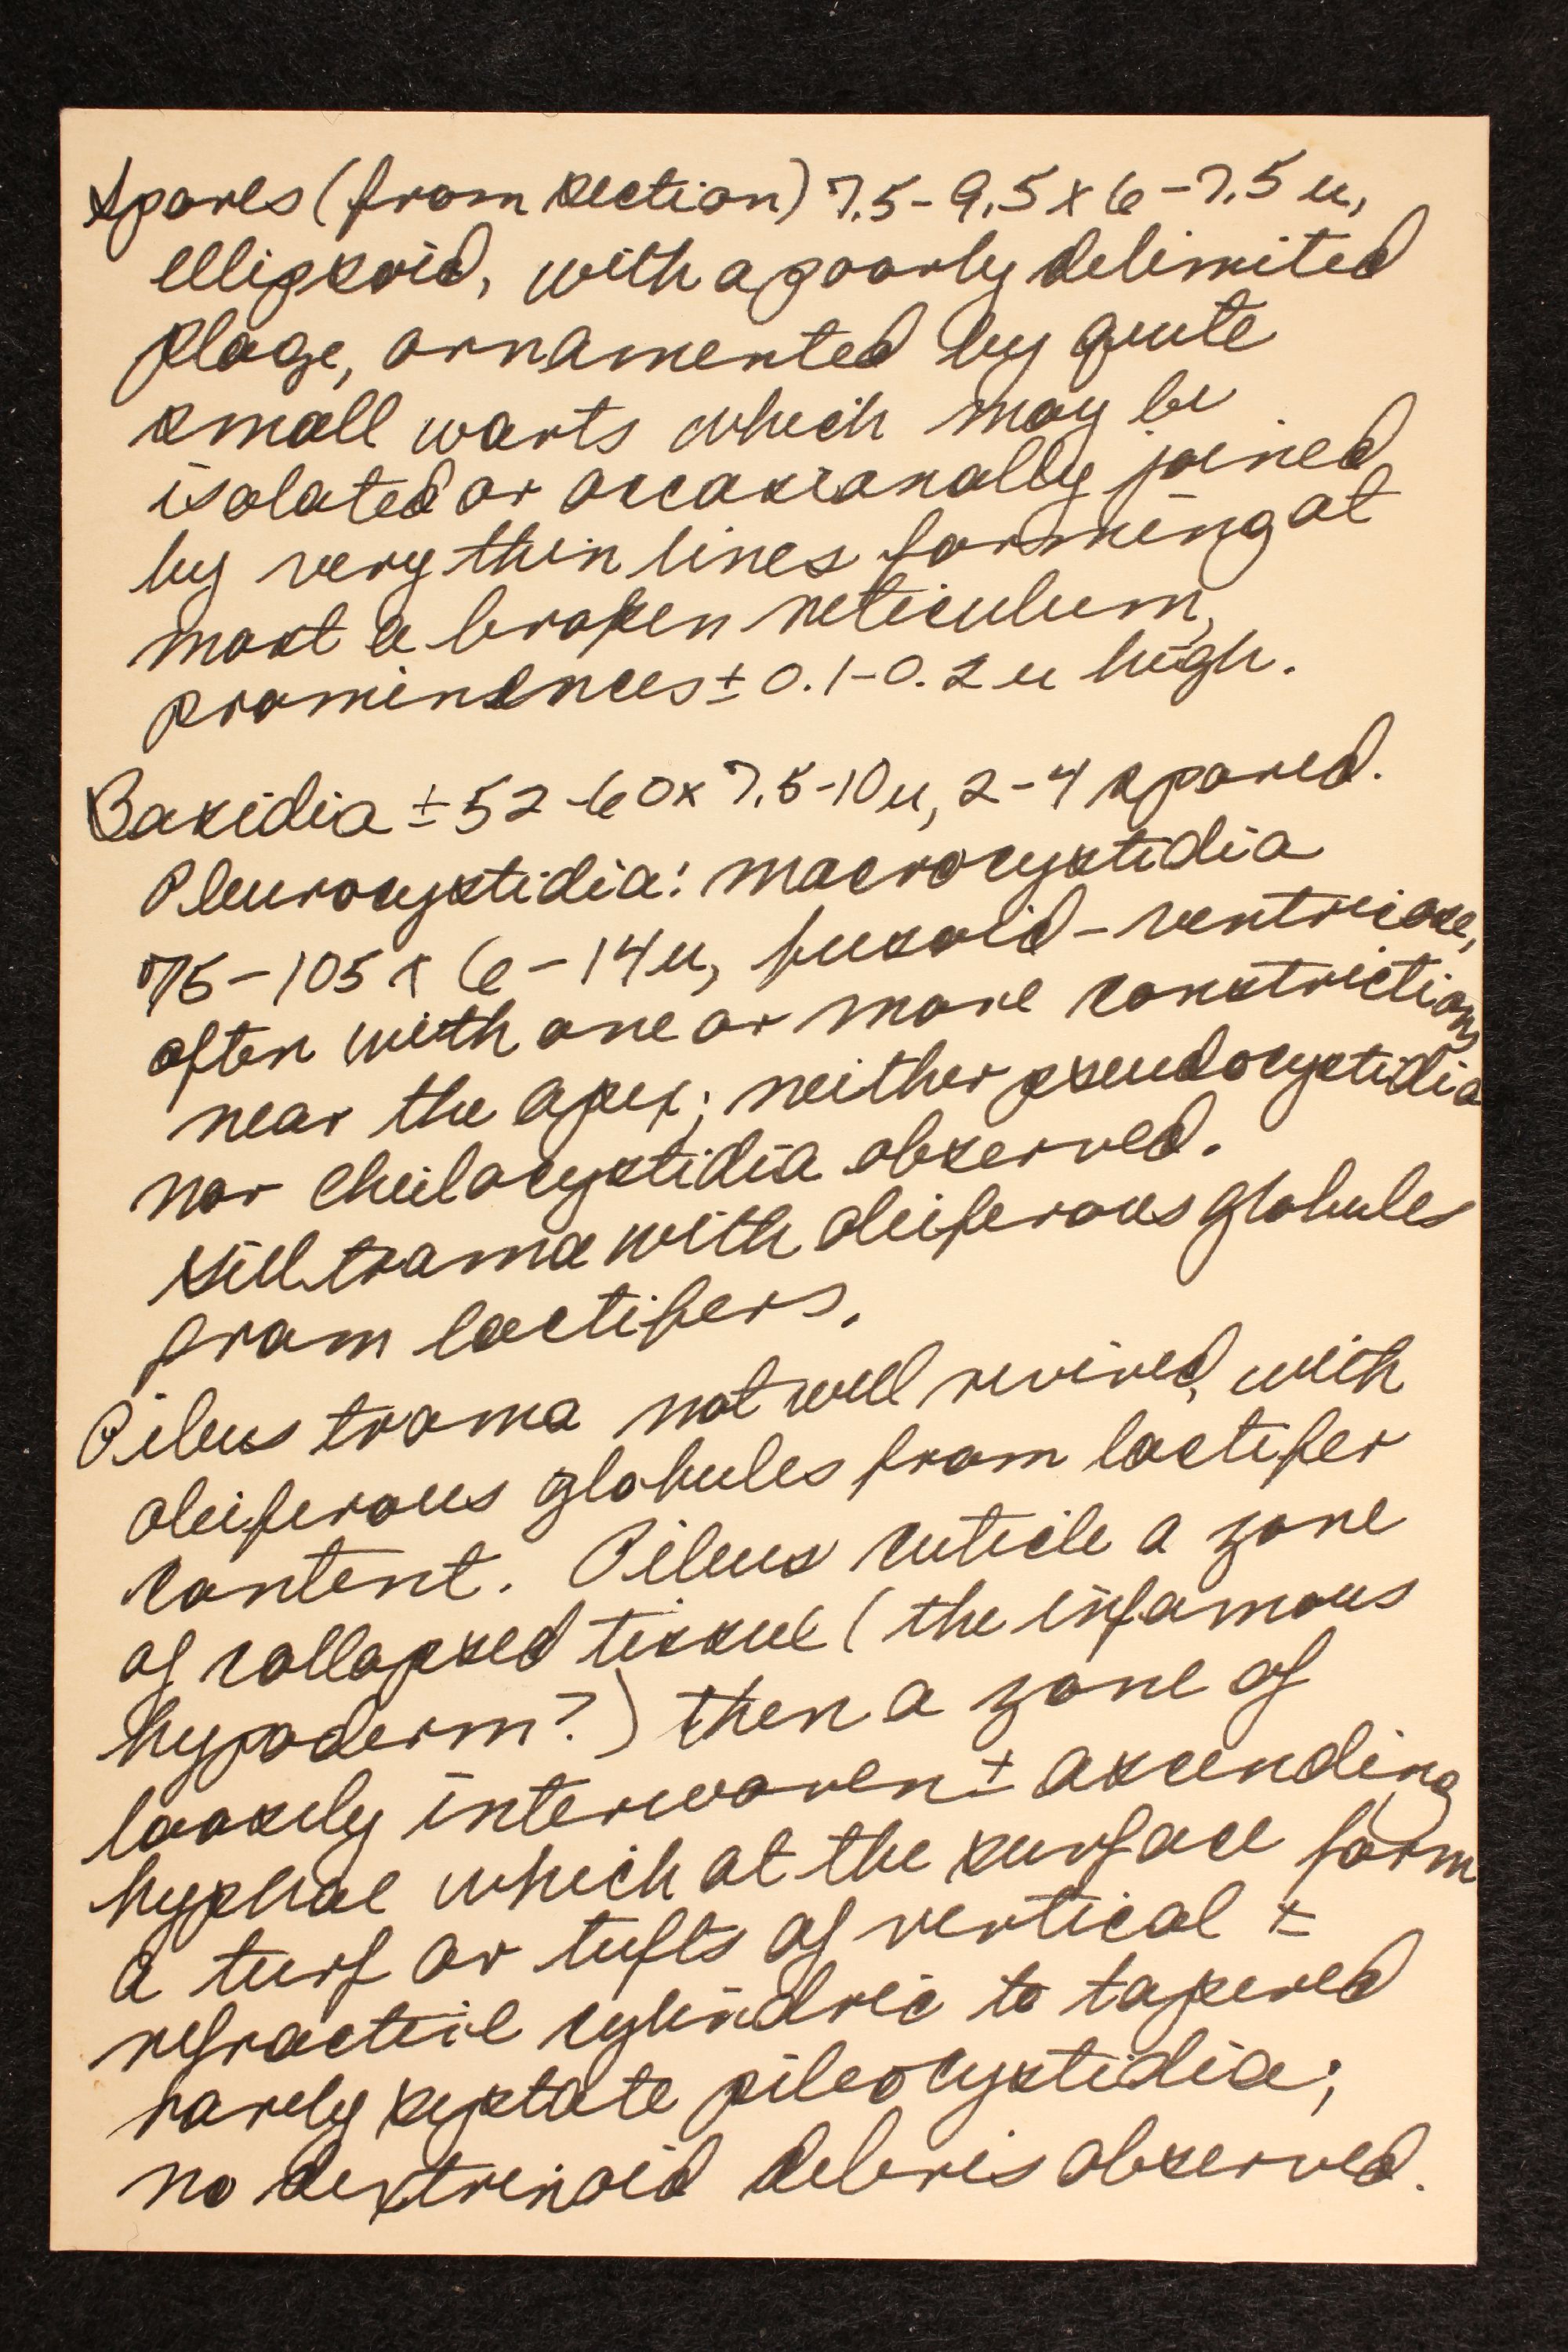 Spores (from section) 7.5-9.5 x 6-7.5 u,
ellipsoid, with a poorly delimited
plage, ornamented by quite
small warts which may be
isolated or occasionally joined
by very thin lines forming at
most a broken reticulum,
prominences ± 0.1-0.2 u high.
Basidia ± 52-60 x 7.5-10 u, 2-4 spored.
Pleurocystidia: macrocystidia
75-105 x 6-14 u, fusoid-ventricose,
often with one or more constrictions
near the apex; neither pseudocystidia
nor cheilocystidia observed.
Gill trama with oleiferous globules
from lactifers.
Pileus trama not well revived, with
oleiferous globules from lactifer
content. Pileus cuticle a zone
of collapsed tissue (the infamous
hypoderm?) then a zone of
loosely interwoven ± ascending
hyphae which at the surface form
a turf or tufts of vertical ±
refractile cylindric to tapered
rarely septate pileocystidia;
no dextrinoid debris observed.